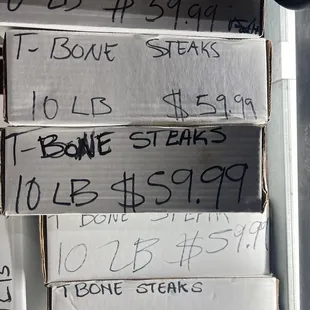 LB $59.99
T-BONE STEAKS
10 LB $59.99
T-BONE STEAKS
10 LB $59.99
T BONE STEAK
10 LB $59.99
T BONE STEAKS